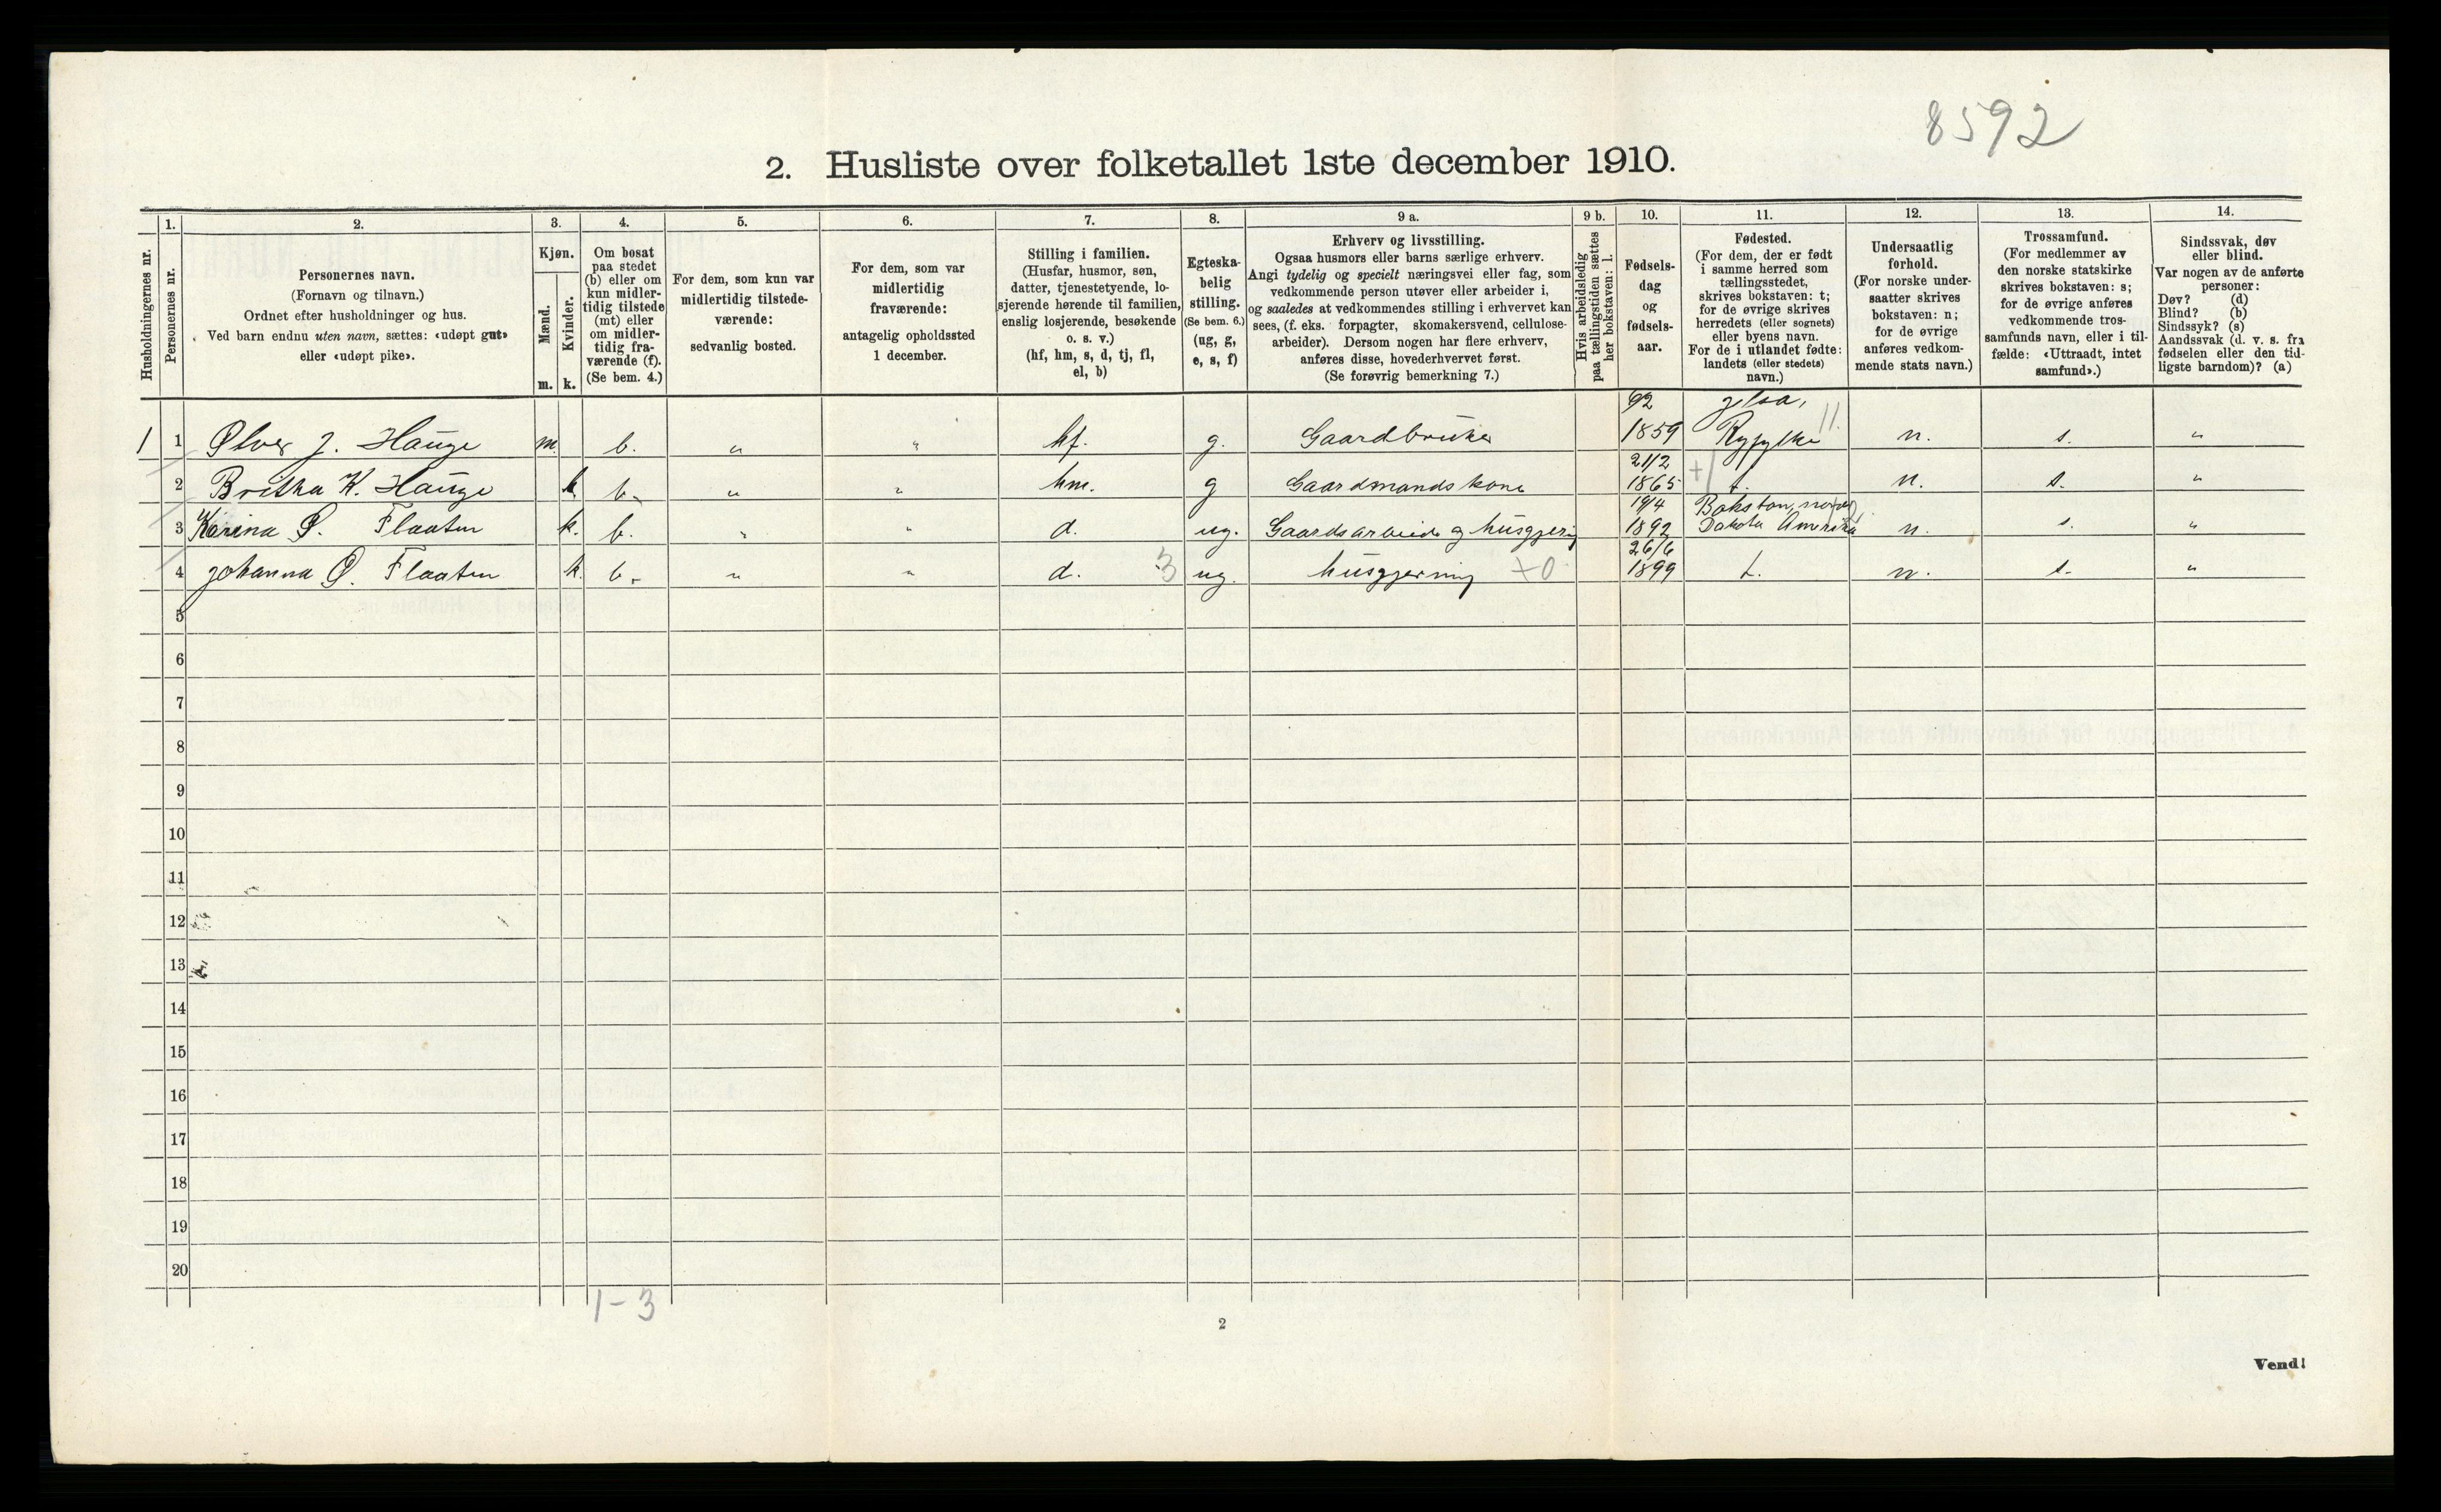 8592
2. Husliste over folketallet 1ste december 1910.
Husholdningernes nr.
1.
Personernes nr.
2.
Personernes navn.
(Fornavn og tilnavn.)
Ordnet efter husholdninger og hus.
Ved barn endnu uten navn, sættes: «udøpt gut»
eller «udøpt pike».
3.
Kjøn.
Mænd.
m.
Kvinder.
k.
4.
Om bosat
paa stedet
(b) eller om
kun midler-
tidig tilstede
(mt) eller
om midler-
tidig fra-
værende (f).
(Se bem. 4.)
5.
For dem, som kun var
midlertidig tilstede-
værende:
sedvanlig bosted.
6.
For dem, som var
midlertidig
fraværende:
antagelig opholdssted
1 december.
7.
Stilling i familien.
(Husfar, husmor, søn,
datter, tjenestetyende, lo-
sjerende hørende til familien,
enslig losjerende, besøkende
o. s. v.)
(hf, hm, s, d, tj, fl,
el, b)
8.
Egteska-
belig
stilling.
(Se bem. 6.)
(ug, g,
e, s, f)
9 a.
Erhverv og livsstilling.
Ogsaa husmors eller barns særlige erhverv.
Angi tydelig og specielt næringsvei eller fag, som
vedkommende person utøver eller arbeider i,
og saaledes at vedkommendes stilling i erhvervet kan
sees, (f. eks. forpagter, skomakersvend, cellulose-
arbeider). Dersom nogen har flere erhverv,
anføres disse, hovederhvervet først.
(Se forøvrig bemerkning 7.)
9 b.
Hvis arbeidsledig
paa tællingstiden sættes
her bokstaven: l.
10.
Fødsels-
dag
og
fødsels-
aar.
11.
Fødested.
(For dem, der er født
i samme herred som
tællingsstedet,
skrives bokstaven: t;
for de øvrige skrives
herredets (eller sognets)
eller byens navn.
For de i utlandet fødte:
landets (eller stedets)
navn.)
12.
Undersaatlig
forhold.
(For norske under-
saatter skrives
bokstaven: n;
for de øvrige
anføres vedkom-
mende stats navn.)
13.
Trossamfund.
(For medlemmer av
den norske statskirke
skrives bokstaven: s;
for de øvrige anføres
vedkommende tros-
samfunds navn, eller i til-
fælde: «Uttraadt, intet
samfund».)
14.
Sindssvak, døv
eller blind.
Var nogen av de anførte
personer:
Døv? (d)
Blind? (b)
Sindssyk? (s)
Aandssvak (d. v. s. fra
fødselen eller den tid-
ligste barndom)? (a)
1 1 Ølver J. Hauge m. b. " " hf. g. Gaardbruker 1859 Ryfylke 11 n. s. "
2 Britha K. Hauge k b. " " hm. g Gaardmandskone 21/2 1865 t. n. s. "
3 Karina Ø. Flaaten k. b. " " d. ug. Gaardsarbeide og husgjerning 19/4 1892 Dakota Amerika n. s. "
4 Johanna Ø. Flaaten k. b. " " d. 3 ug. husgjerning +0 26/6 1899 t. n. s. "
5
6
7
8
9
10
11
12
13
14
15
16
17
18
19
20
1-3
2
Vend!